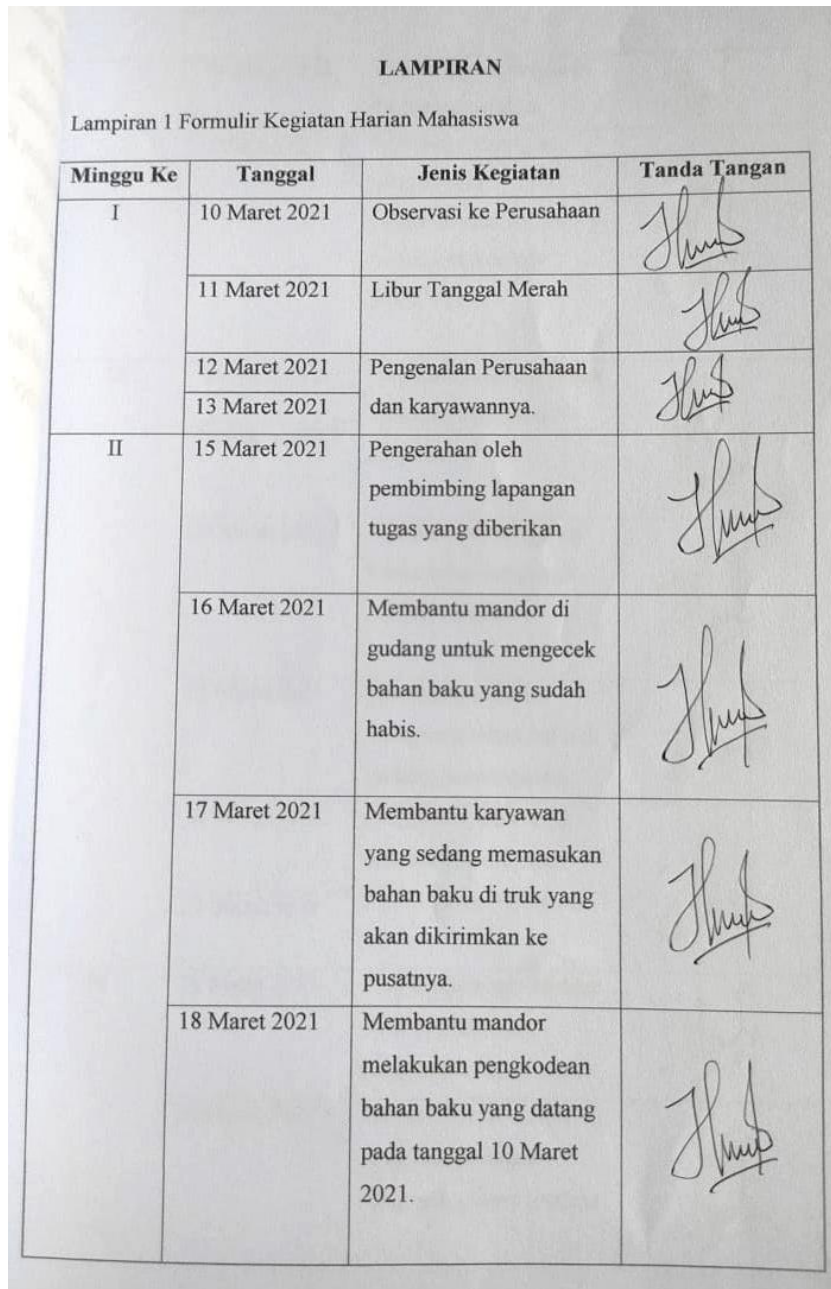 LAMPIRAN
Lampiran 1 Formulir Kegiatan Harian Mahasiswa
Minggu Ke Tanggal Jenis Kegiatan Tanda Tangan
I 10 Maret 2021 Observasi ke Perusahaan
11 Maret 2021 Libur Tanggal Merah
12 Maret 2021 Pengenalan Perusahaan
13 Maret 2021 dan karyawannya.
II 15 Maret 2021 Pengerahan oleh
pembimbing lapangan
tugas yang diberikan
16 Maret 2021 Membantu mandor di
gudang untuk mengecek
bahan baku yang sudah
habis.
17 Maret 2021 Membantu karyawan
yang sedang memasukan
bahan baku di truk yang
akan dikirimkan ke
pusatnya.
18 Maret 2021 Membantu mandor
melakukan pengkodean
bahan baku yang datang
pada tanggal 10 Maret
2021.